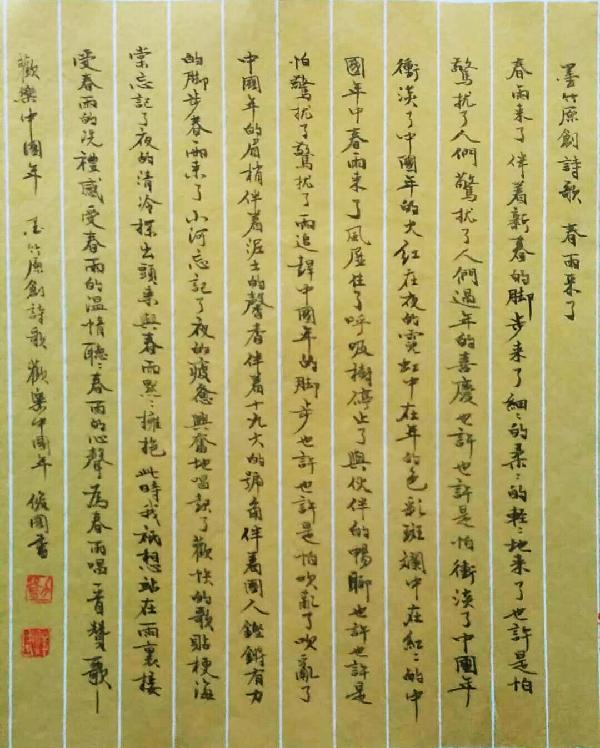 墨竹原創詩歌 春雨来了
春雨来了伴着新春的脚步来了細〻的柔〻的輕〻地来了也許是怕
驚扰了人們驚扰了人們過年的喜慶也許也許是怕衝淡了中國年
衝淡了中國年的火紅在夜的霓虹中在年的色彩斑斕中在紅〻的中
國年中春雨来了風屋住了呼吸樹停止了與伙伴的暢聊也許也許是
怕驚扰了驚扰了雨追趕中國年的脚步也許也許是怕吹亂了吹亂了
中國年的眉梢伴着泥土的馨香伴着十九大的號角伴着國人鏗鏘有力
的脚步春雨来了小河忘記了夜的疲憊興奮地唱起了歡快的歌貼梗海
棠忘記了夜的清冷探出頭来與春雨默〻擁抱此時我祇想站在雨裏接
受春雨的洗禮感受春雨的温情聽〻春雨的心聲為春雨唱一首贊歌—
歡樂中國年 墨竹原創詩歌歡樂中國年 俊國書